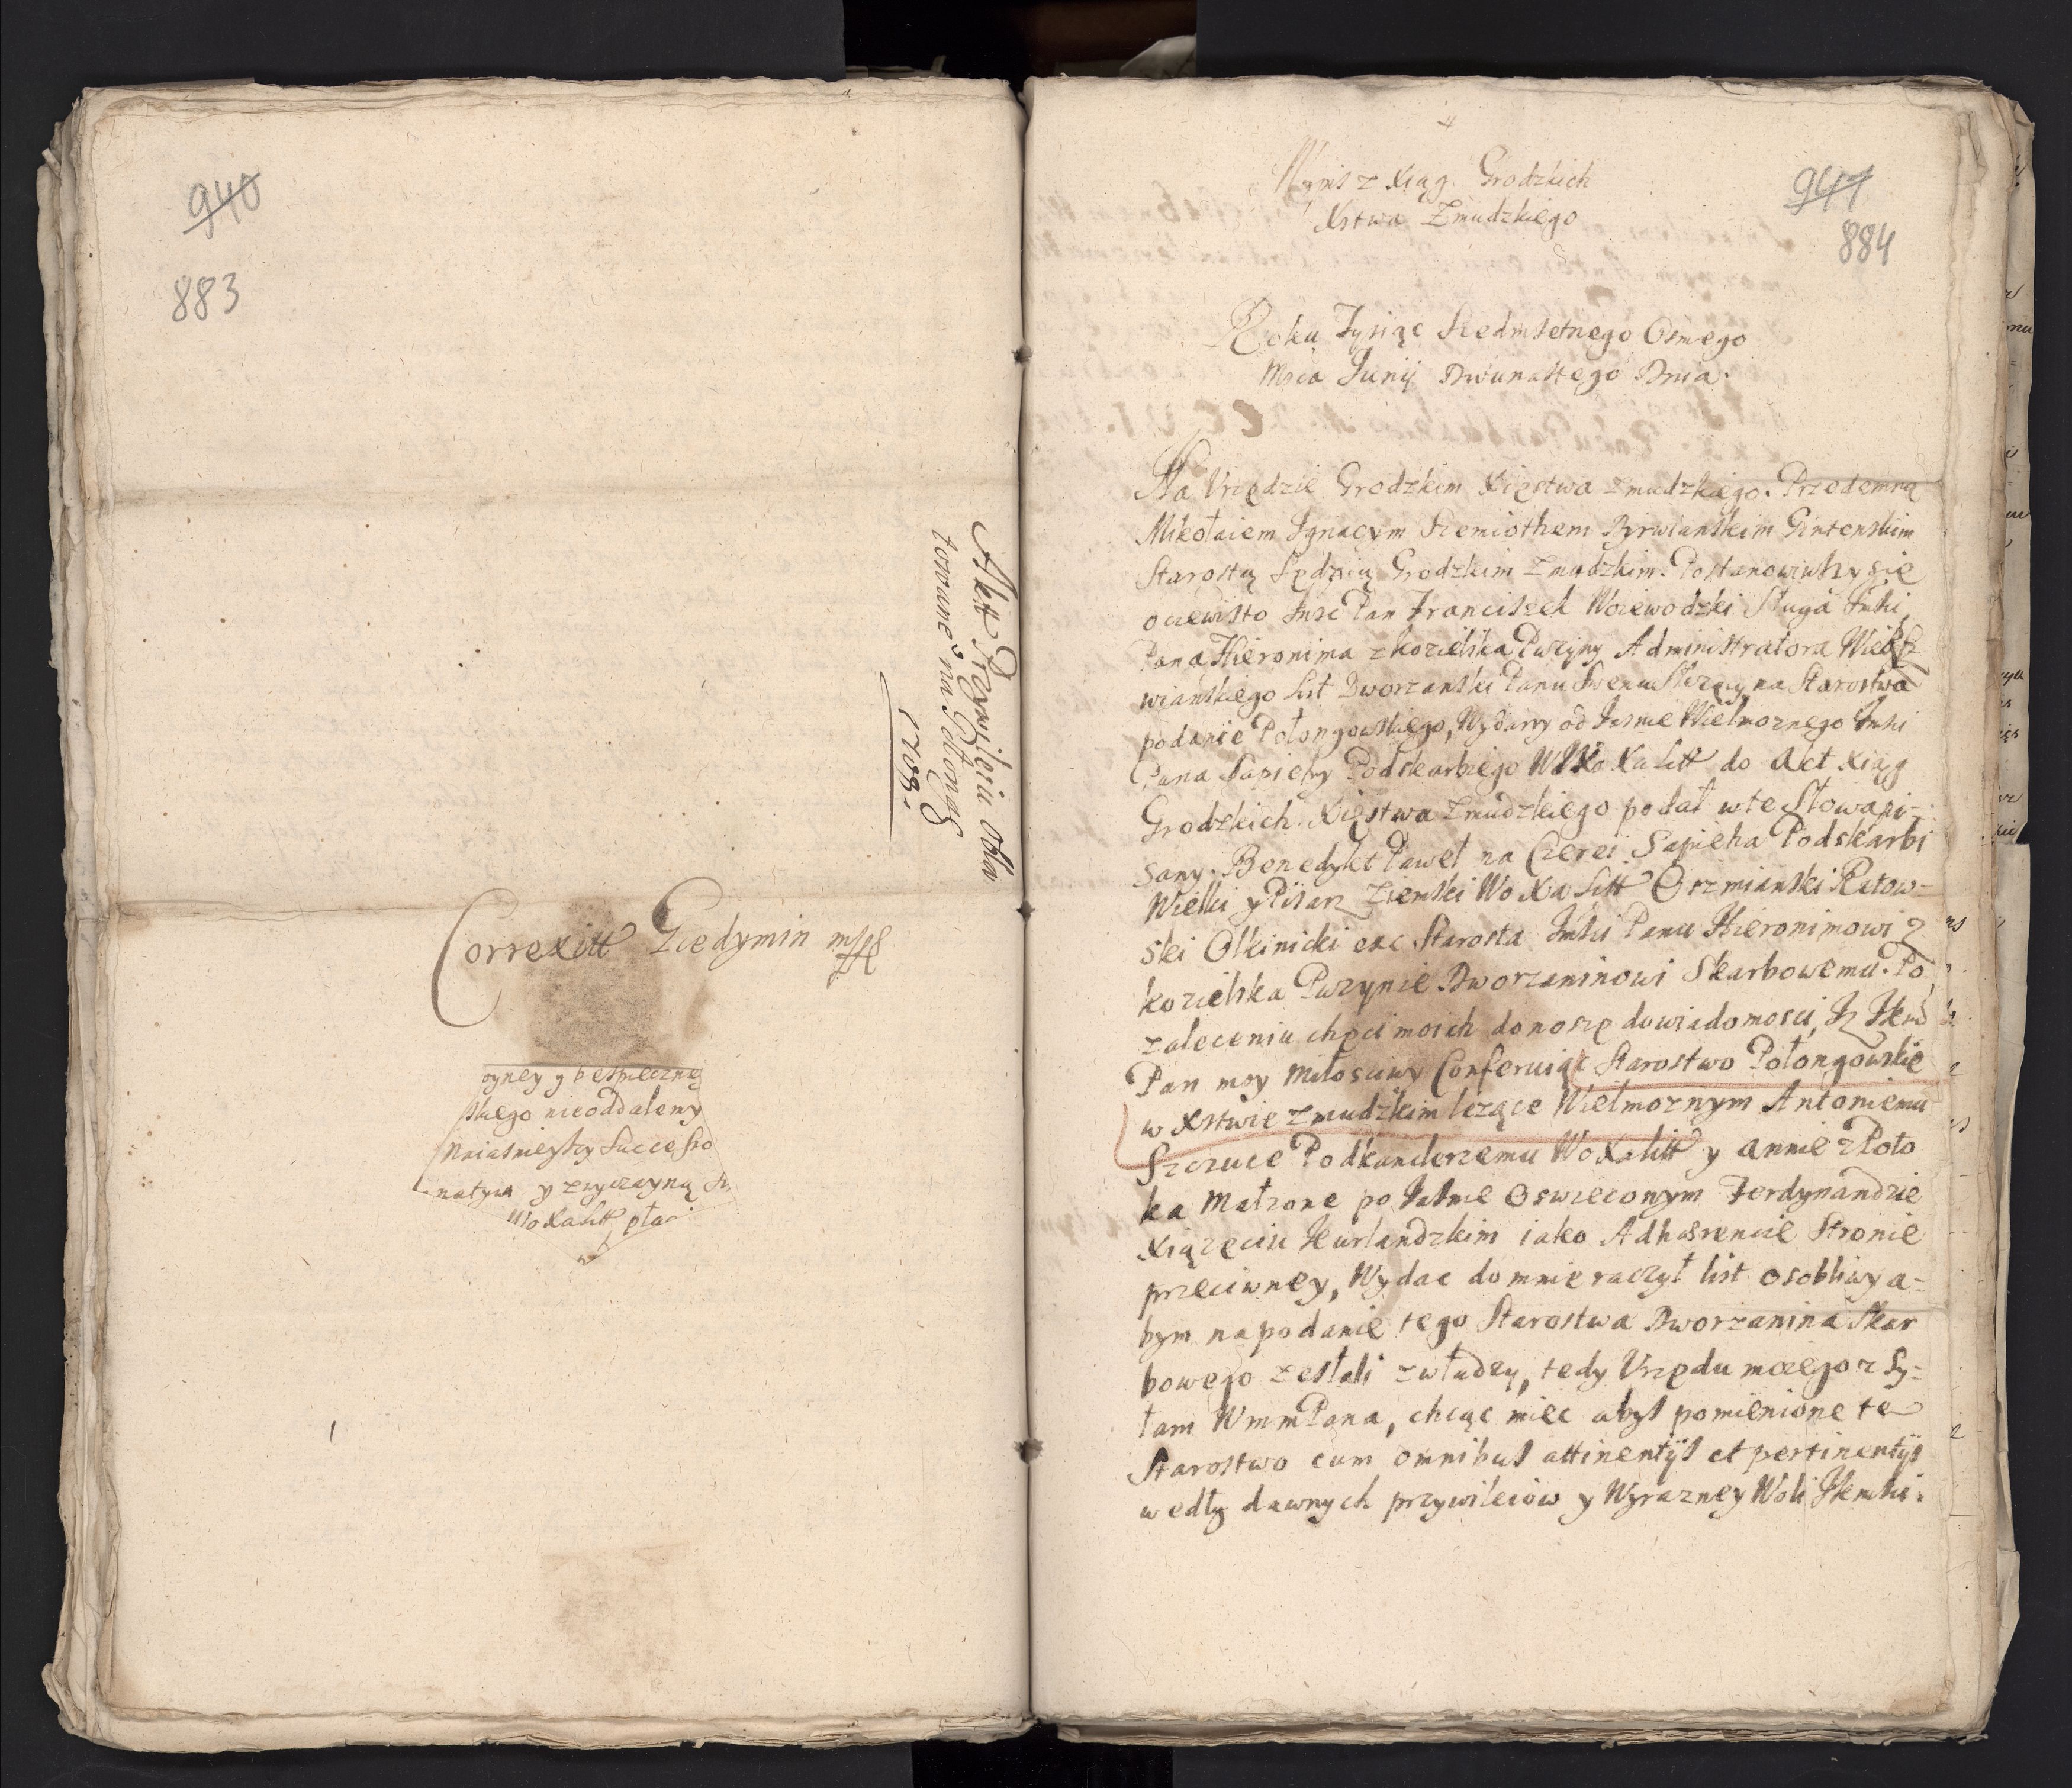 940
883
Akt Przywileiu obla
towane° na Połongę
1708.
Correxitt Giedymin mpp
oyney y bespieczney
skiego nieoddalemy
Naiasnieyszy Successo
natywa y zwyczayną
Wo Xa Litt płaci
4
Wypis z Xiąg Grodzkich
Xstwa Zmudzkiego
941
884
Roku Tysiąc Siedmsetnego Osmego
Msca Junij Dwunastego Dnia.
Na Urzędzie Grodzkim Xięstwa Zmudzkiego. Przedemną
Mikołaiem Ignacym Sziemiothem Dyrwianskim Gintenskim
Starostą Sędzią Grodzkim Zmudzkim. Postanowiwszy się
oczewisto Imsc Pan Franciszek Woiewodzki Sługa Imsci
Pana Hieronima z Kozielska Puzyny Administratora Wiesz
wianskiego List Dworzanski Panu Swemu Służący na Starostwa
podanie Połongowskiego, Wydany od Jasnie Wielmoznego Imsci
Pana Sapiehy Podskarbiego WWo Xa Litt do Akt Xiąg
Grodzkich Xięstwa Zmudzkiego podał w te Słowa pi=
sany. Benedykt Paweł na Czerei Sapieha Podskarbi
Wielki y Pisarz Ziemski Wo Xa Litt Oszmianski Ratow=
ski Olkinicki etc Starosta Imsci Panu Hieronimowi z
Kozielska Puzynie Dworzaninowi Skarbowemu. Po
zaleceniu chęci moich donoszę do wiadomosci, Iz JKm
Pan moy Miłosciwy Conferuiąc Starostwo Połongowskie
w Xstwie Zmudzkim lezące Wielmoznym Antoniemu
Szczuce Podkanclerzemu Wo Xa Litt y Annie z Poto
ka Małzonę po Jasnie Oswieconym Ferdynandzie
Xiązęciu Kurlandzkim iako Adhaerencie Stronie
przeciwney, Wydac do mnie raczył list osobliwy a=
bym na podanie tego Starostwa Dworzanina Skar
bowego zesłał z władzy, tedy Urzędu moiego zsy=
łam WmmPana, chcąc miec abys pomienione te
Starostwo cum omnibus attinentijs et pertinentijs
wedłg dawnych przywileiow y Wyrazney Woli JKmsci.